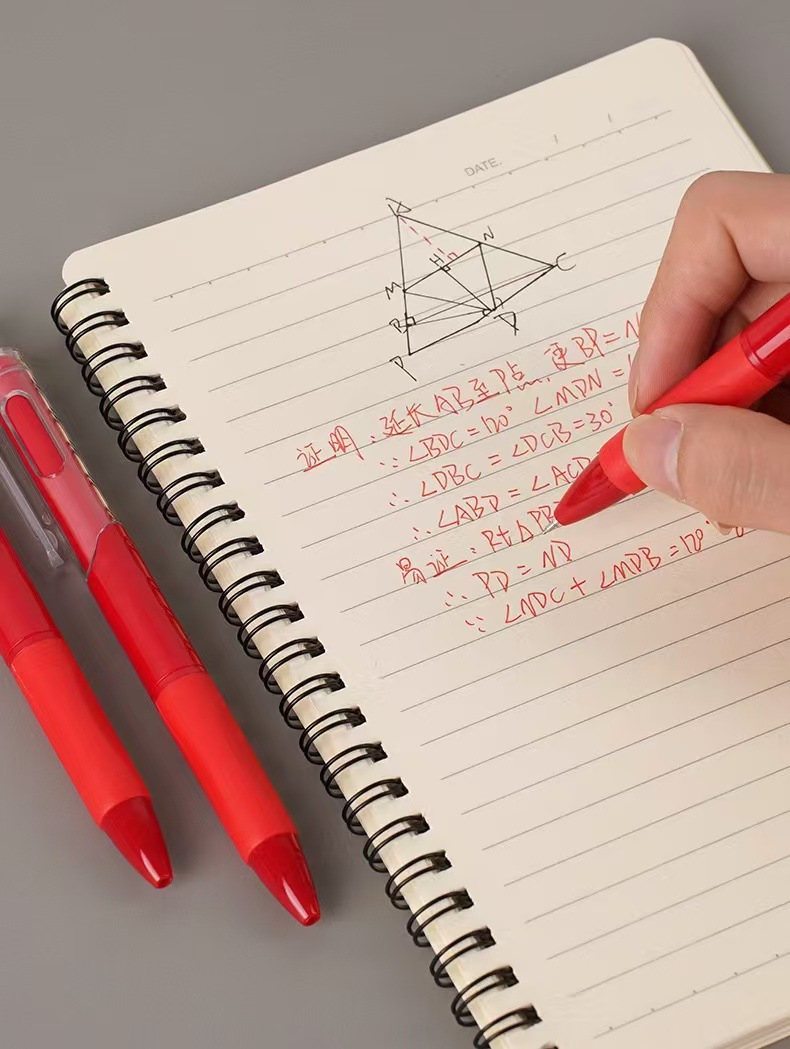 DATE.
A
N
H
M
C
B
D
P
证明：延长AB至P点，使BP=N
∵ ∠BDC=120° ∠MDN=
∴ ∠DBC=∠DCB=30°
∴ ∠ABD=∠ACD
易证：Rt△PB
∴ PD=ND
∵ ∠NDC+∠MDB=120°